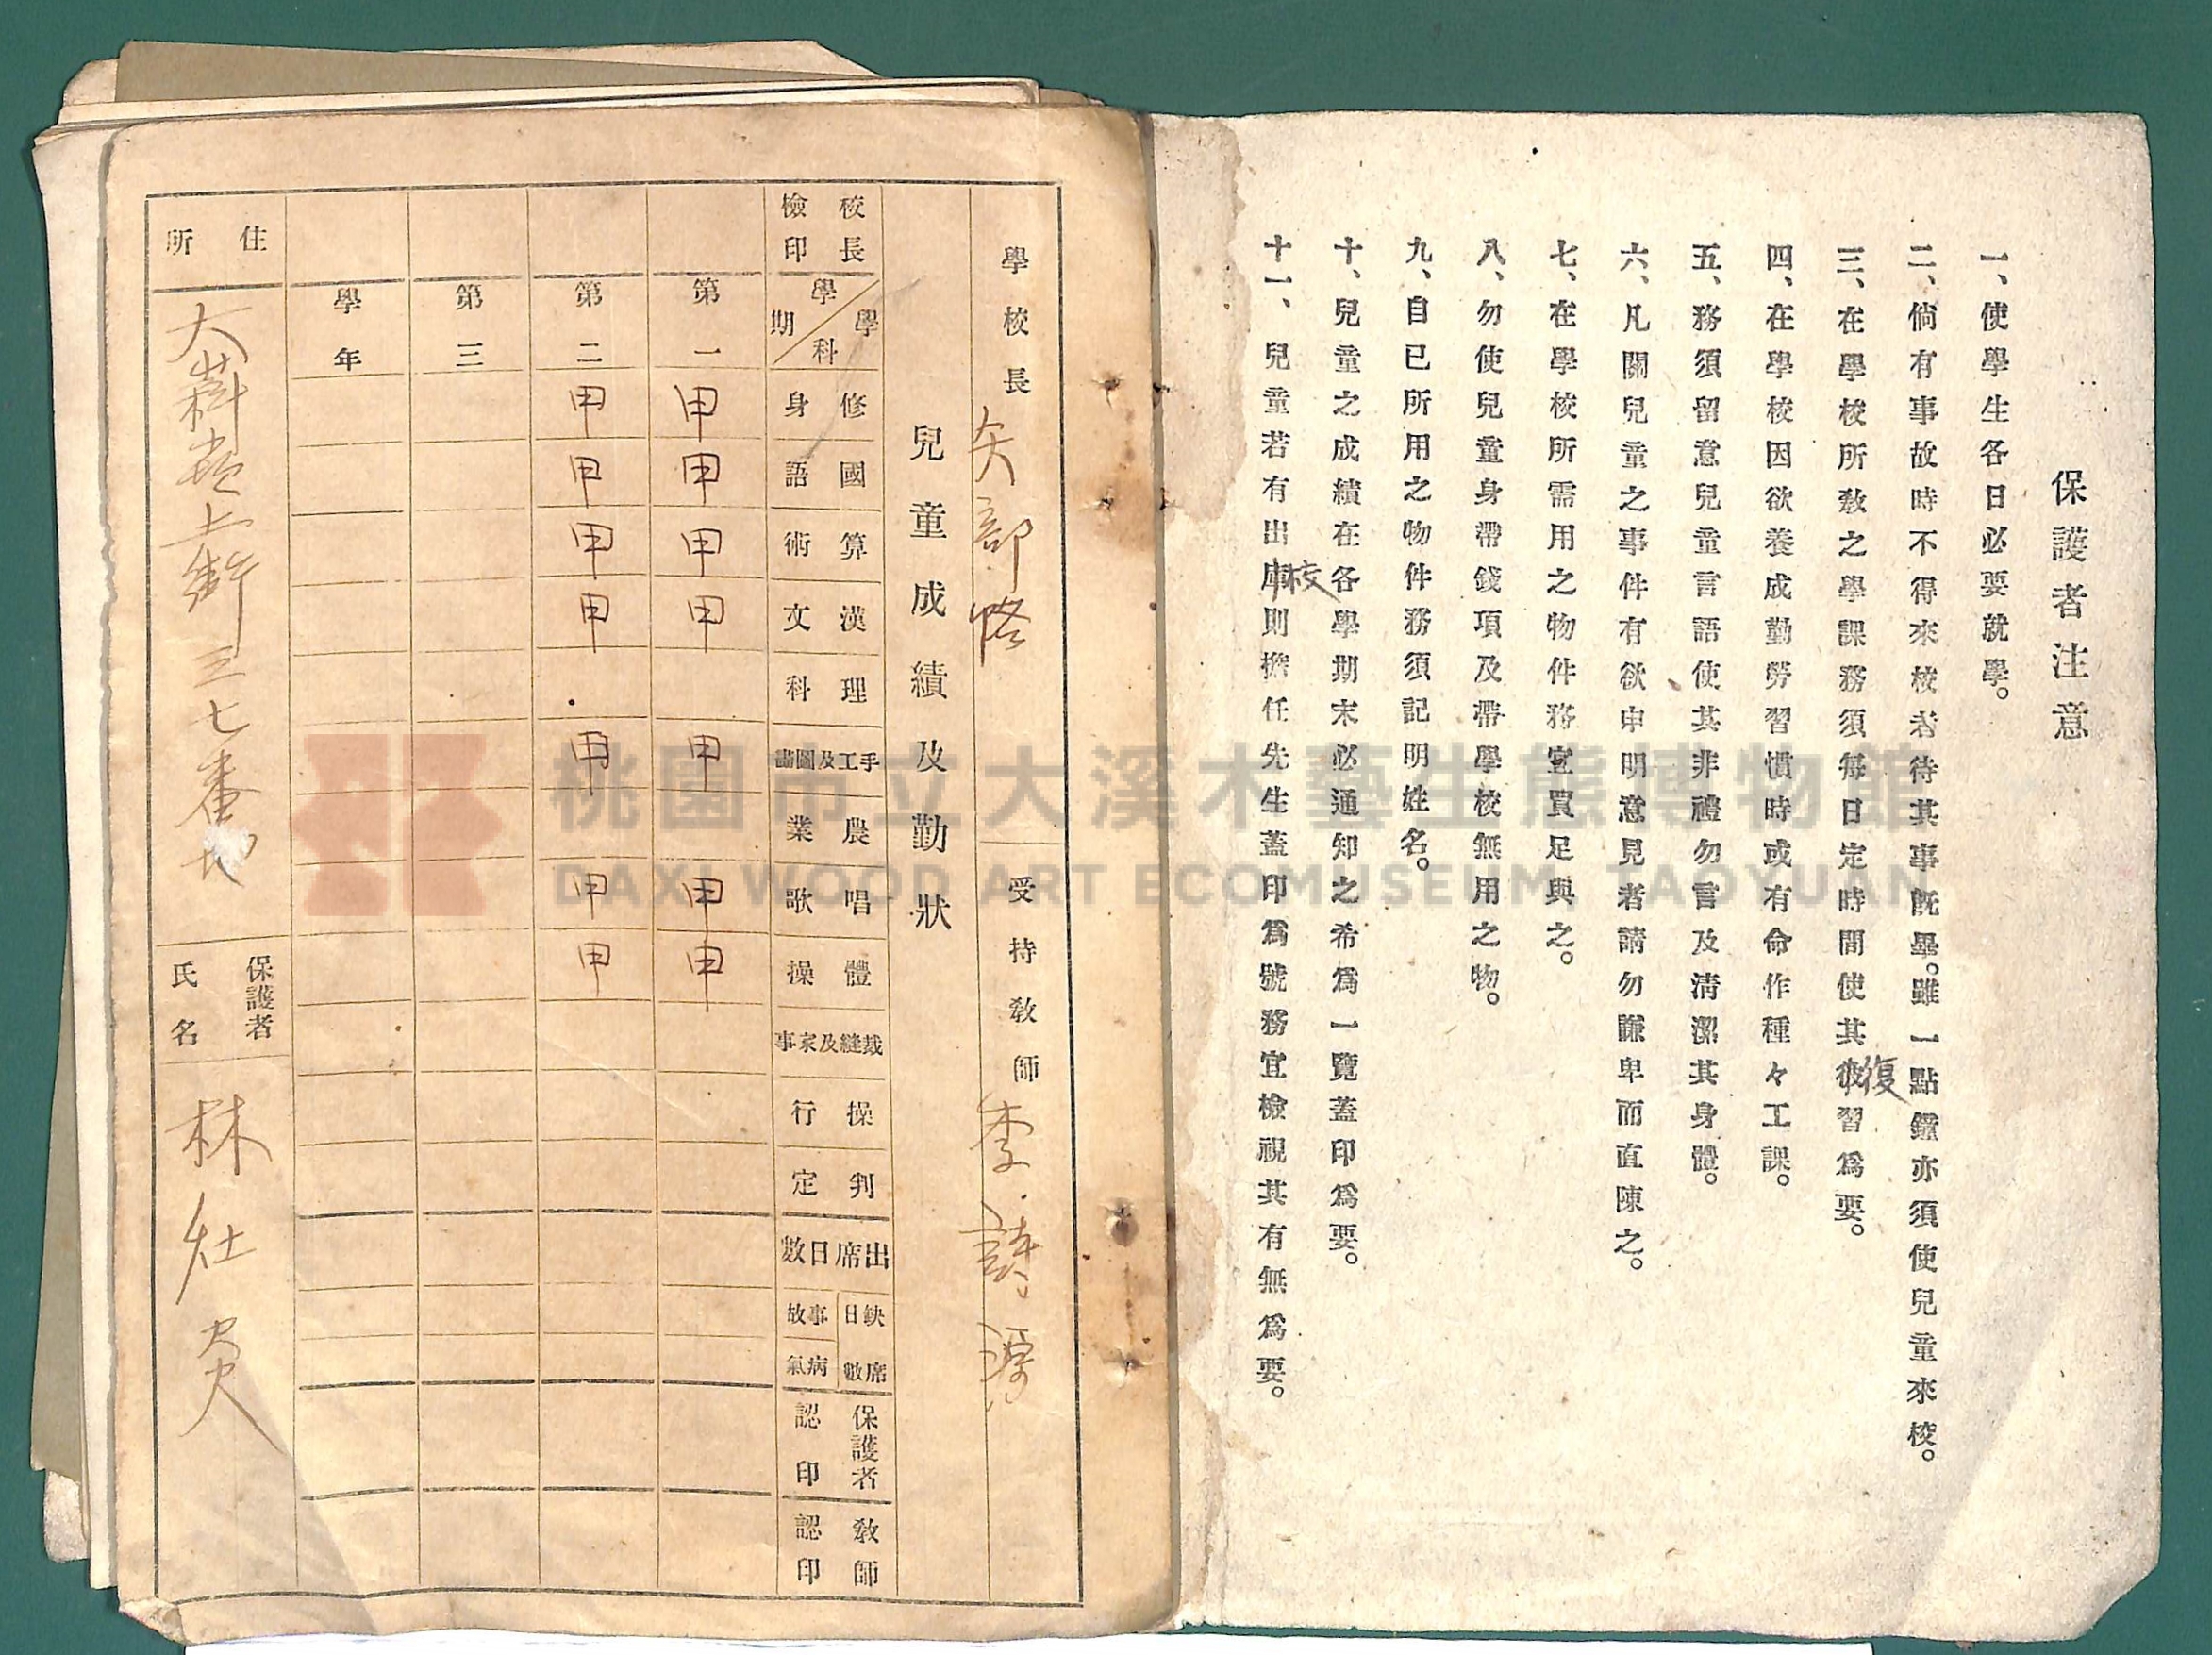 保護者注意
一、使學生各日必要就學。
二、倘有事故時不得來校者待其事旣畢。雖一點鐘亦須使兒童來校。
三、在學校所敎之學課務須每日定時間使其復習爲要。
四、在學校因欲養成勤勞習慣時或有命作種々工課。
五、務須留意兒童言語使其非禮勿言及淸潔其身體。
六、凡關兒童之事件有欲申明意見者請勿謙卑而直陳之。
七、在學校所需用之物件務宜買足與之。
八、勿使兒童身帶錢項及帶學校無用之物。
九、自已所用之物件務須記明姓名。
十、兒童之成績在各學期末必通知之希爲一覽蓋印爲要。
十一、兒童若有出校則擔任先生蓋印爲號務宜檢視其有無爲要。
學校長 矢部 受持敎師 李
兒童成績及勤狀
校長檢印 學科 學期 修身 國語 算術 漢文 理科 手工及圖畫 農業 唱歌 體操 裁縫及家事 操行 判定 出席日數 缺席日數 事故 病氣 保護者認印 敎師認印
第一 甲 甲 甲 甲 甲 甲 甲
第二 甲 甲 甲 甲 甲 甲 甲
第三
學年
住所 大嵙崁上街三七番地 保護者氏名 林
桃園市立大溪木藝生態博物館
DAXI WOOD ART ECOMUSEUM, TAOYUAN